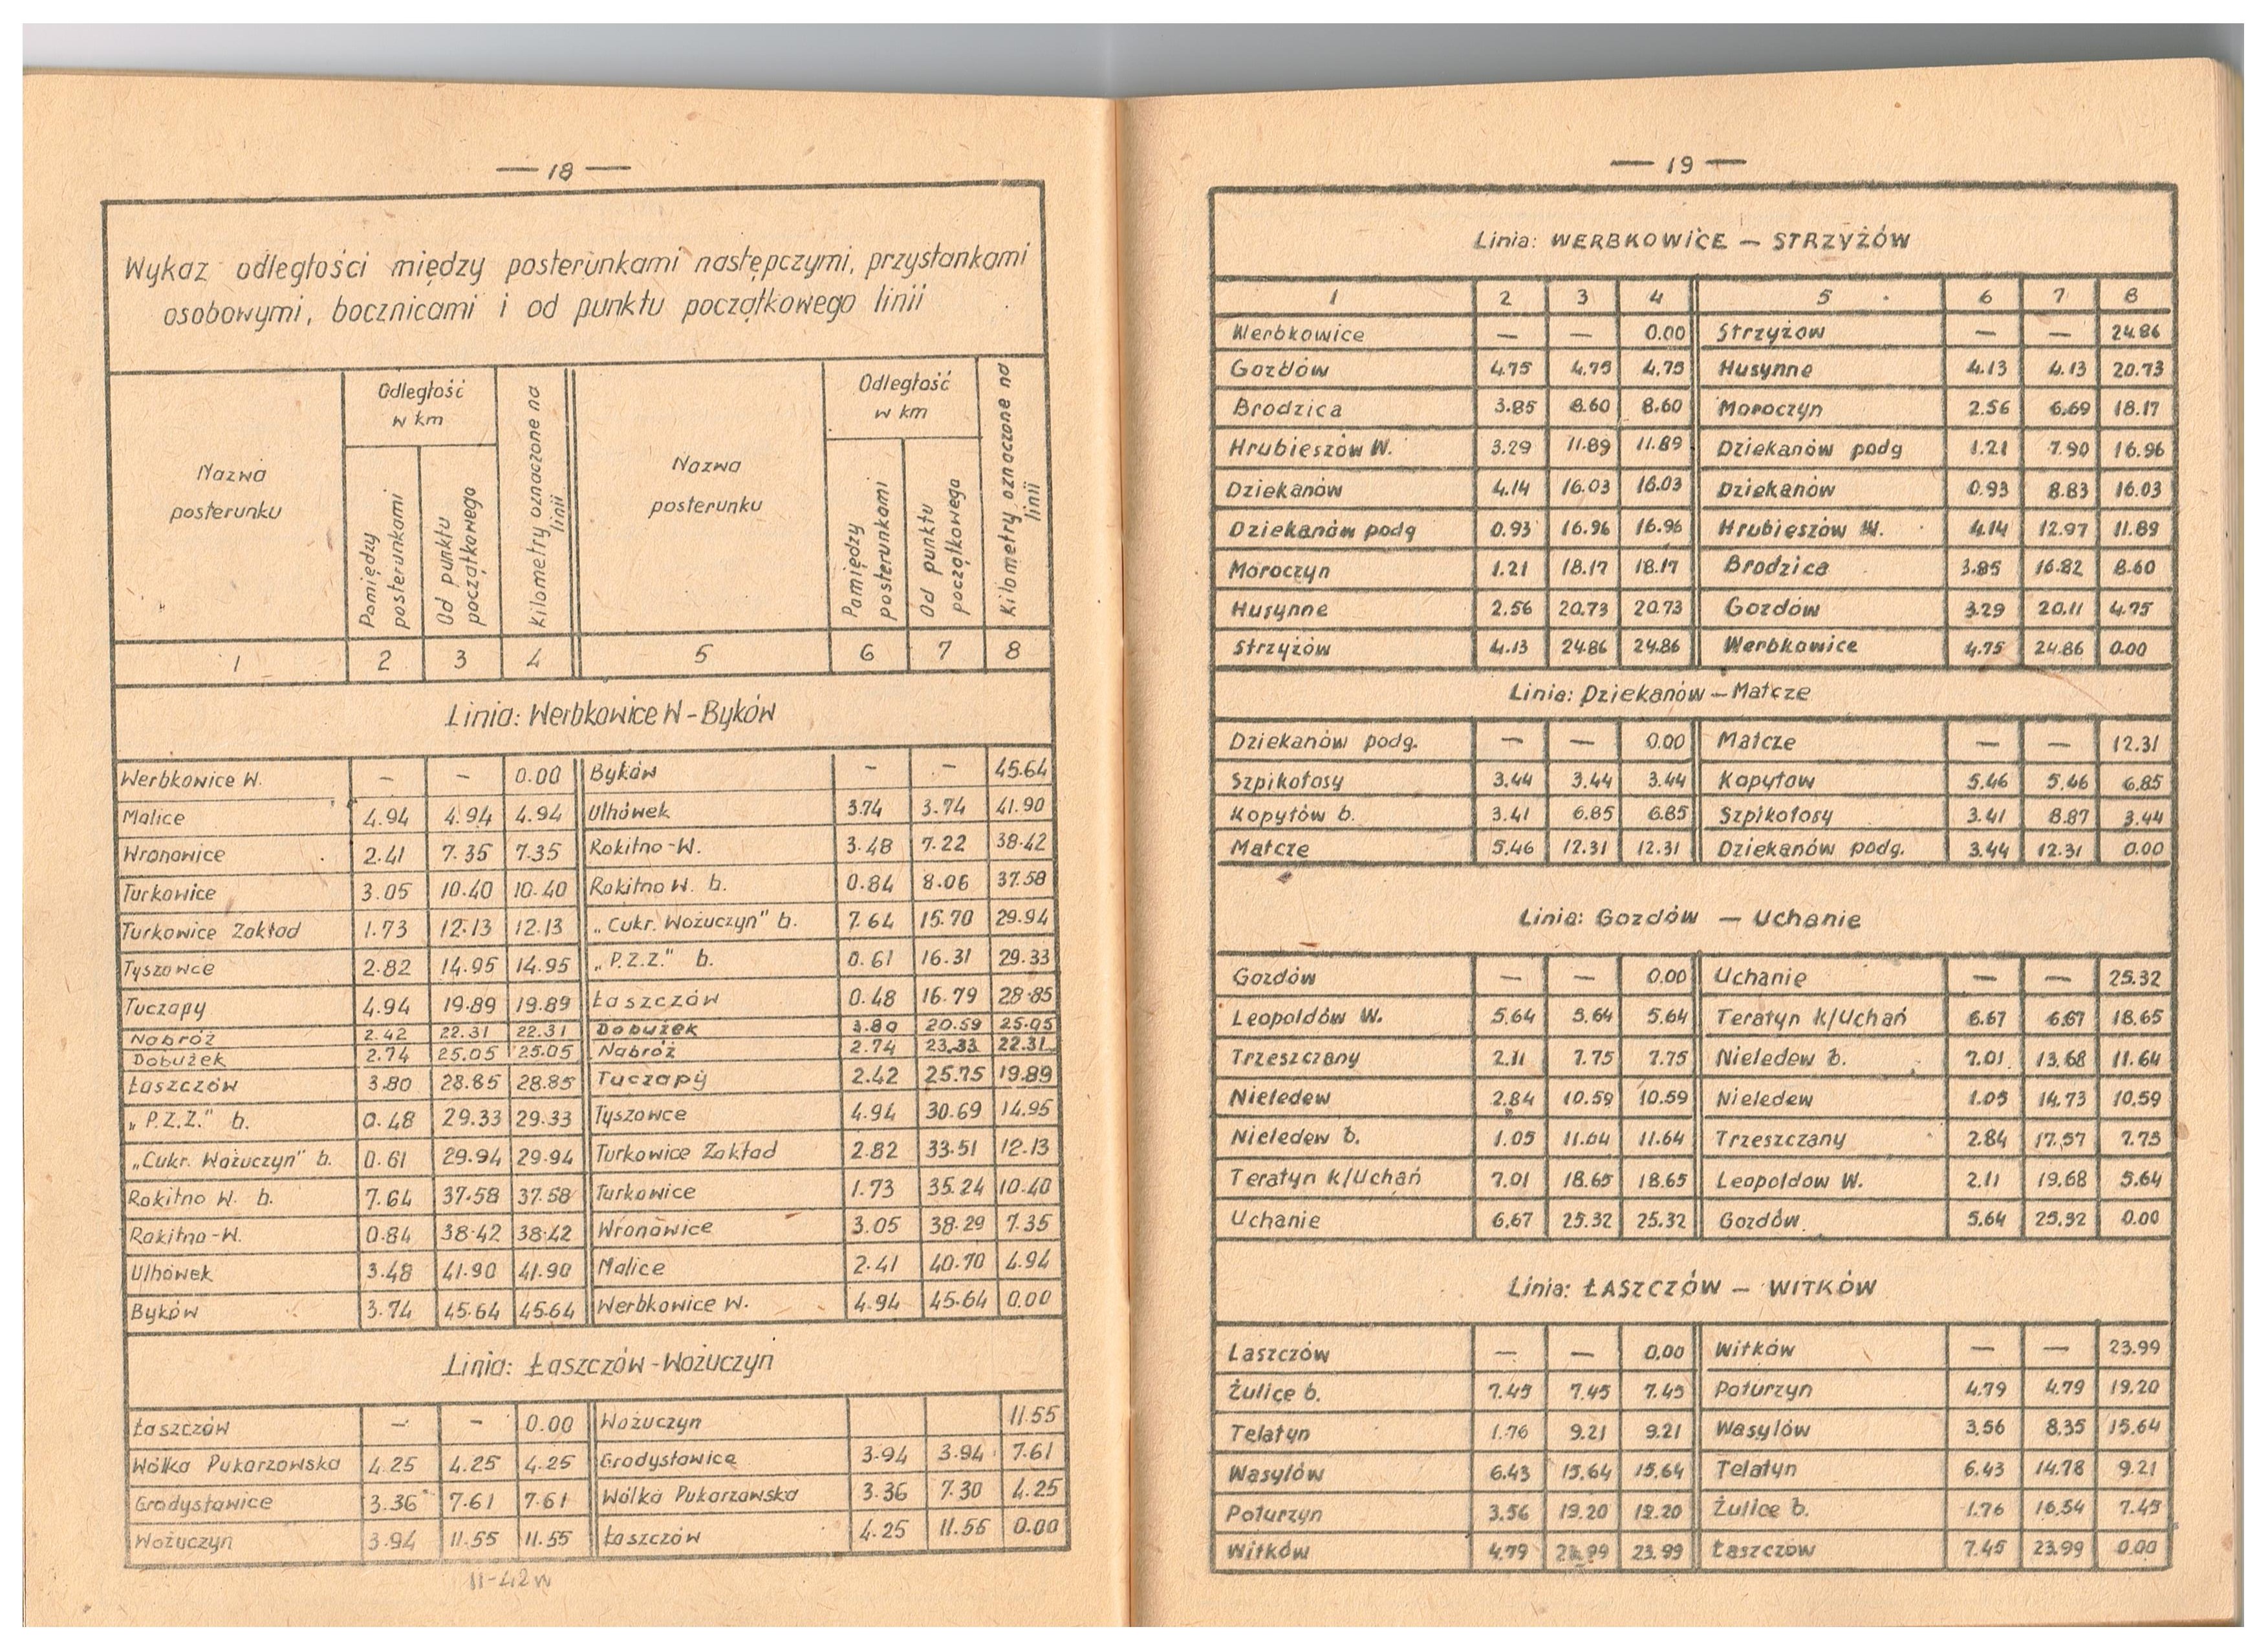 — 18 —
Wykaz odległości między posterunkami następczymi, przystankami
osobowymi, bocznicami i od punktu początkowego linii
Nazwa posterunku
Odległość w km
Pomiędzy posterunkami
Od punktu początkowego
Kilometry oznaczone na linii
Nazwa posterunku
Odległość w km
Pomiędzy posterunkami
Od punktu początkowego
Kilometry oznaczone na linii
1 2 3 4 5 6 7 8
Linia: Werbkowice W - Byków
Werbkowice W. – – 0.00 Byków – – 45.64
Malice 4.94 4.94 4.94 Ulhówek 3.74 3.74 41.90
Wronowice 2.41 7.35 7.35 Rokitno-W. 3.48 7.22 38.42
Turkowice 3.05 10.40 10.40 Rokitno W. b. 0.84 8.06 37.58
Turkowice Zakład 1.73 12.13 12.13 „Cukr. Wożuczyn" b. 7.64 15.70 29.94
Tyszowce 2.82 14.95 14.95 „P.Z.Z." b. 0.61 16.31 29.33
Tuczapy 4.94 19.89 19.89 Łaszczów 0.48 16.79 28.85
Nabróż 2.42 22.31 22.31 Dobużek 3.80 20.59 25.05
Dobużek 2.74 25.05 25.05 Nabróż 2.74 23.33 22.31
Łaszczów 3.80 28.85 28.85 Tuczapy 2.42 25.75 19.89
„P.Z.Z." b. 0.48 29.33 29.33 Tyszowce 4.94 30.69 14.95
„Cukr. Wożuczyn" b. 0.61 29.94 29.94 Turkowice Zakład 2.82 33.51 12.13
Rokitno W. b. 7.64 37.58 37.58 Turkowice 1.73 35.24 10.40
Rokitno-W. 0.84 38.42 38.42 Wronowice 3.05 38.29 7.35
Ulhówek 3.48 41.90 41.90 Malice 2.41 40.70 4.94
Byków 3.74 45.64 45.64 Werbkowice W. 4.94 45.64 0.00
Linia: Łaszczów - Wożuczyn
Łaszczów – – 0.00 Wożuczyn 11.55
Wólka Pukarzowska 4.25 4.25 4.25 Grodysławice 3.94 3.94 7.61
Grodysławice 3.36 7.61 7.61 Wólka Pukarzowska 3.36 7.30 4.25
Wożuczyn 3.94 11.55 11.55 Łaszczów 4.25 11.55 0.00
— 19 —
Linia: WERBKOWICE — STRZYŻÓW
1 2 3 4 5 6 7 8
Werbkowice — — 0.00 Strzyżow — — 24.86
Gozdów 4.75 4.75 4.75 Husynne 4.13 4.13 20.73
Brodzica 3.85 8.60 8.60 Moroczyn 2.56 6.69 18.17
Hrubieszów W. 3.29 11.89 11.89 Dziekanów podg 1.21 7.90 16.96
Dziekanów 4.14 16.03 16.03 Dziekanów 0.93 8.83 16.03
Dziekanów podg 0.93 16.96 16.96 Hrubieszów W. 4.14 12.97 11.89
Moroczyn 1.21 18.17 18.17 Brodzica 3.85 16.82 8.60
Husynne 2.56 20.73 20.73 Gozdów 3.29 20.11 4.75
Strzyżów 4.13 24.86 24.86 Werbkowice 4.75 24.86 0.00
Linia: Dziekanów — Matcze
Dziekanów podg. — — 0.00 Matcze — — 12.31
Szpikołosy 3.44 3.44 3.44 Kopytow 5.46 5.46 6.85
Kopytów b. 3.41 6.85 6.85 Szpikołosy 3.41 8.87 3.44
Matcze 5.46 12.31 12.31 Dziekanów podg. 3.44 12.31 0.00
Linia: Gozdów — Uchanie
Gozdów — — 0.00 Uchanie — — 25.32
Leopoldów W. 5.64 5.64 5.64 Teratyn k/Uchań 6.67 6.67 18.65
Trzeszczany 2.11 7.75 7.75 Nieledew b. 7.01 13.68 11.64
Nieledew 2.84 10.59 10.59 Nieledew 1.05 14.73 10.59
Nieledew b. 1.05 11.64 11.64 Trzeszczany 2.84 17.57 7.75
Teratyn k/Uchań 7.01 18.65 18.65 Leopoldow W. 2.11 19.68 5.64
Uchanie 6.67 25.32 25.32 Gozdów 5.64 25.32 0.00
Linia: ŁASZCZÓW — WITKÓW
Laszczów — — 0.00 Witków — — 23.99
Żulice b. 7.45 7.45 7.45 Poturzyn 4.79 4.79 19.20
Telatyn 1.76 9.21 9.21 Wasylów 3.56 8.35 15.64
Wasylów 6.43 15.64 15.64 Telatyn 6.43 14.78 9.21
Poturzyn 3.56 19.20 19.20 Żulice b. 1.76 16.54 7.45
Witków 4.79 23.99 23.99 Łaszczów 7.45 23.99 0.00